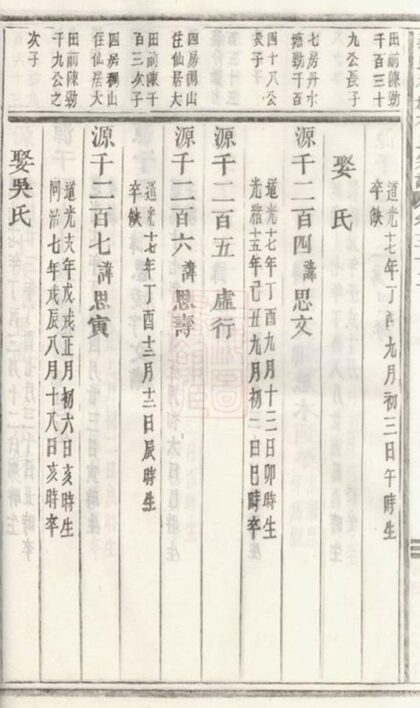 田前陳勤
千百三十
九公長子
七房丹水
塘勤千百
四十八公
長子
四房獨山
住仙居大
田前陳千
百三次子
四房獨山
住仙居大
田前陳勤
千九公之
次子
道光十七年丁酉九月初三日午時生
卒缺
娶 氏
源千二百四諱思文
道光十七年丁酉九月十三日卯時生
光緒十五年己丑九月初二日巳時卒
源千二百五 虛行
源千二百六諱思壽
道光十七年丁酉十二月十二日辰時生
卒缺
源千二百七諱思寅
道光十八年戊戌正月初六日亥時生
同治七年戊辰八月十八日亥時卒
娶吳氏